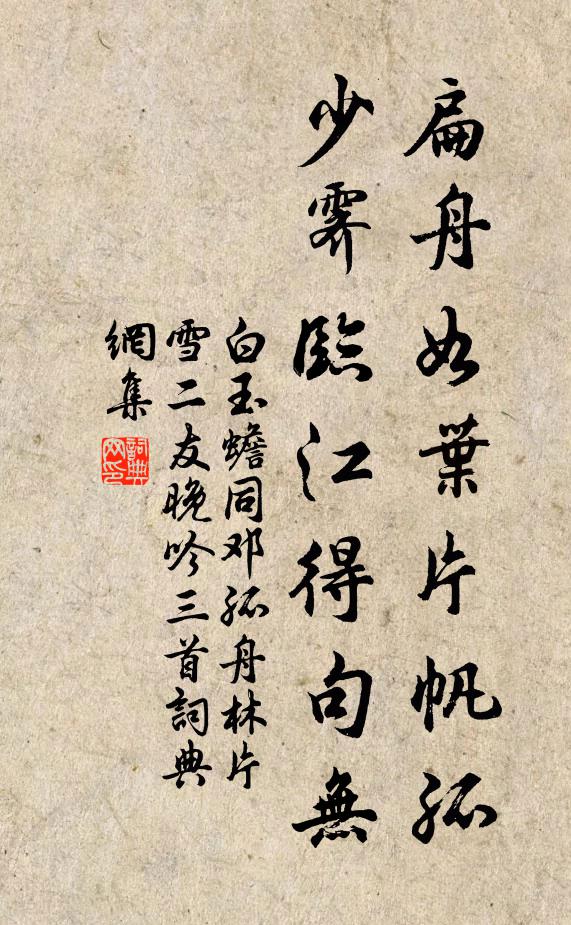 扁舟如葉片帆孤
少霽臨江得句無
白玉蟾同邓孤舟林片
雪二友晚吟三首詞典
網集
詞典网印